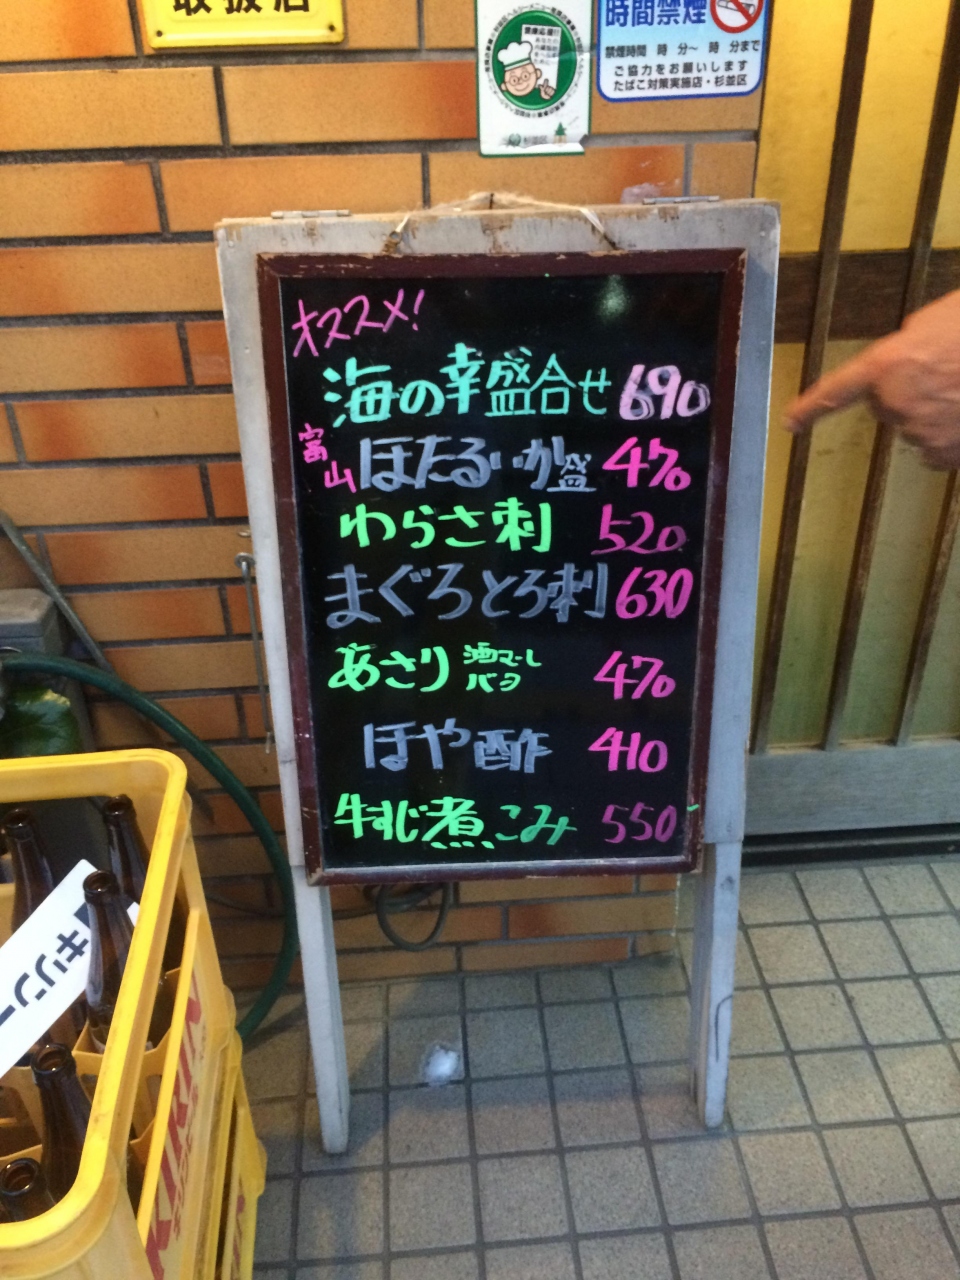 取扱店
健康応援!!
時間禁煙
禁煙時間 時 分〜 時 分まで
ご協力をお願いします
たばこ対策実施店・杉並区
オススメ!
海の幸盛合せ 690
富山 ほたるいか盛 470
わらさ刺 520
まぐろとろ刺 630
あさり 酒ムし バタ 470
ほや酢 410
牛すじ煮こみ 550
キリン
KIRIN